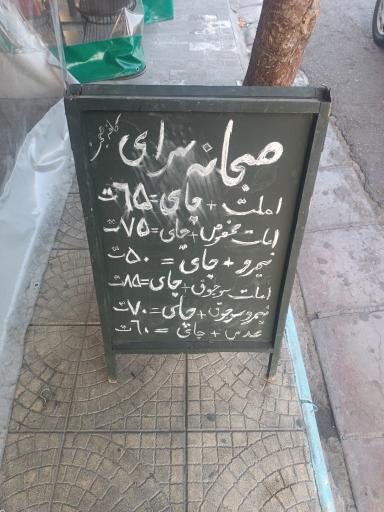 صبحانه سرای
املت + چای = ۶۵ت
املت مخصوص + چای = ۷۵ت
نیمرو + چای = ۵۰ت
املت سوجوق + چای = ۸۵ت
نیمرو سوجوق + چای = ۷۰ت
عدس + چای = ۶۰ت